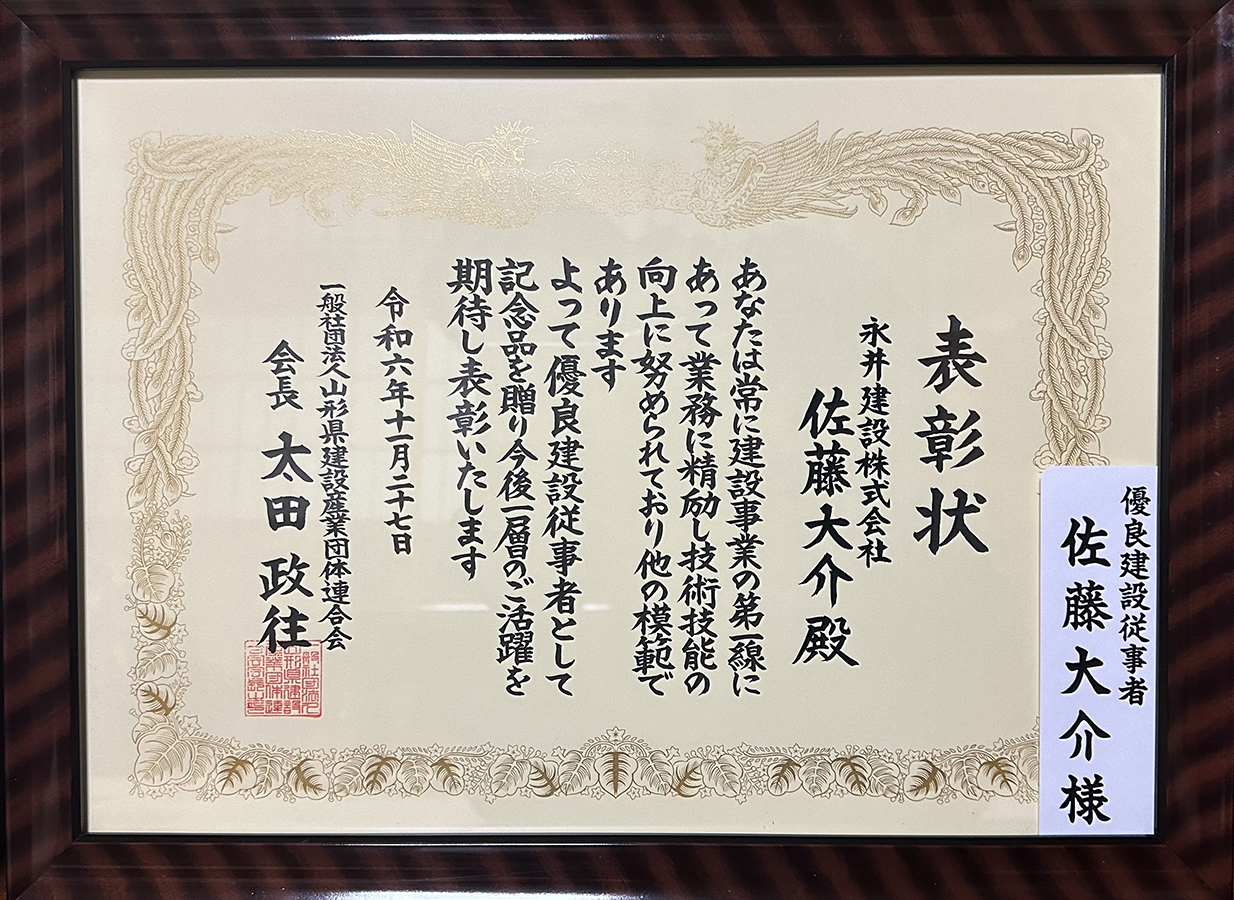 表彰状
永井建設株式会社
佐藤大介殿
あなたは常に建設事業の第一線に
あって業務に精励し技術技能の
向上に努められており他の模範で
あります
よって優良建設従事者として
記念品を贈り今後一層のご活躍を
期待し表彰いたします
令和六年十一月二十七日
一般社団法人山形県建設産業団体連合会
会長 太田政往
優良建設従事者
佐藤大介様